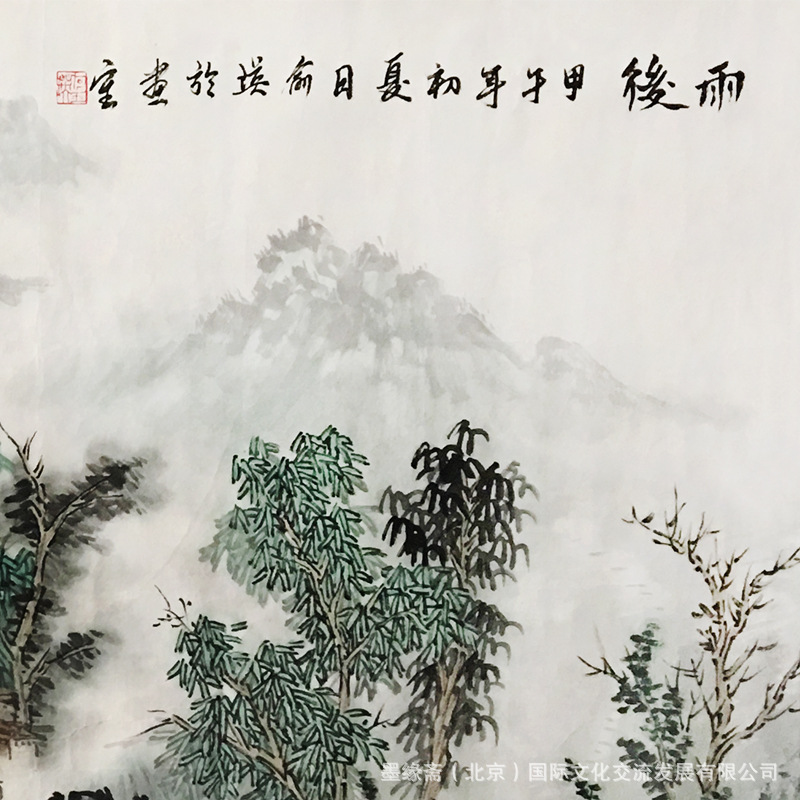 雨後 甲午年初夏日俞瑛於畫室
墨缘斋（北京）国际文化交流发展有限公司